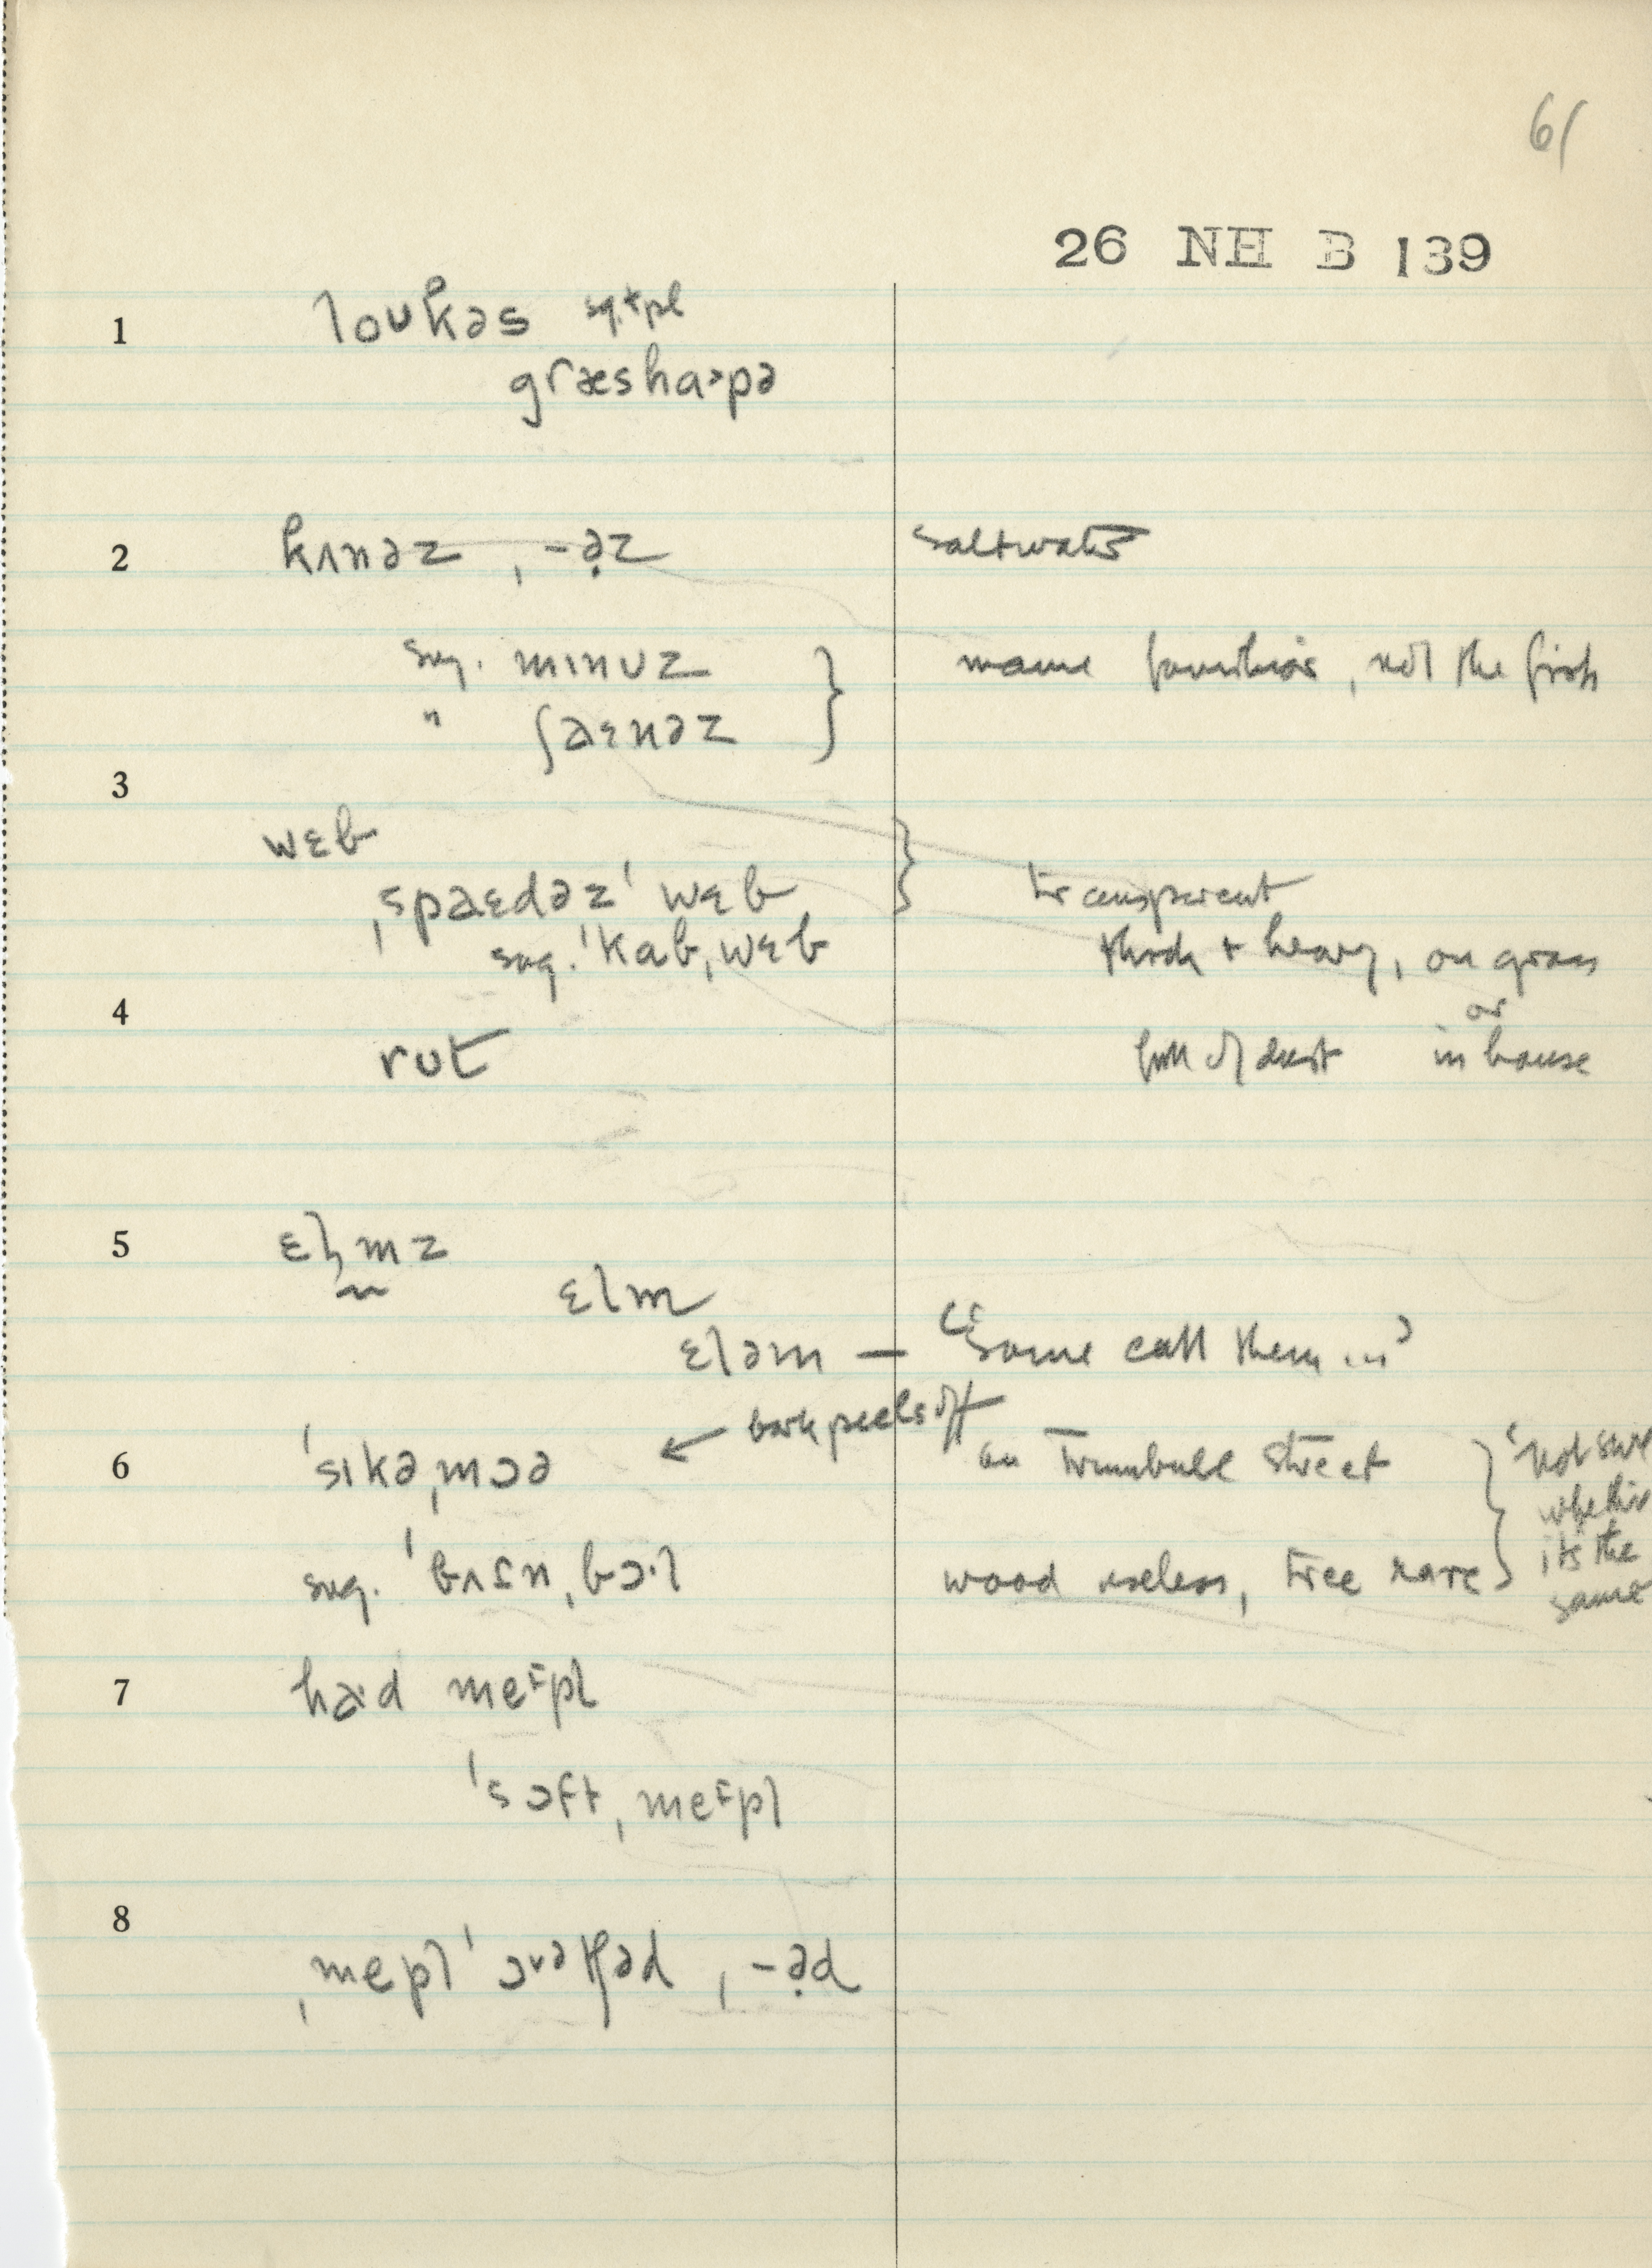 61
26 NH B 139
1 loʊkəs sg. + pl
græshaɔpə
2 kʌnəz, -ə̣z saltwater
sug. mɪnʊz } name familiar, not the fish
" ʃaɛnəz
3
wɛb
ˌspaɛdəzˈ wɛb } transparent
sug. ˈkabˌwɛb thick + heavy, on grass
4 or
rut full of dust in house
5 ɛl̩mz
ɛlm
ɛləm — "Some call them ..."
← bark peels off
6 ˈsɪkəˌmɔə on Trumbull Street } 'not sure
whether
it's the
same
sug. ˈbʌtnˌbɔ·l wood useless, tree rare
7 ha·d meɪpl
ˈsɔftˌmeɪpl
8
ˌmepḷˈɔʊətʃəd, -ə̣d